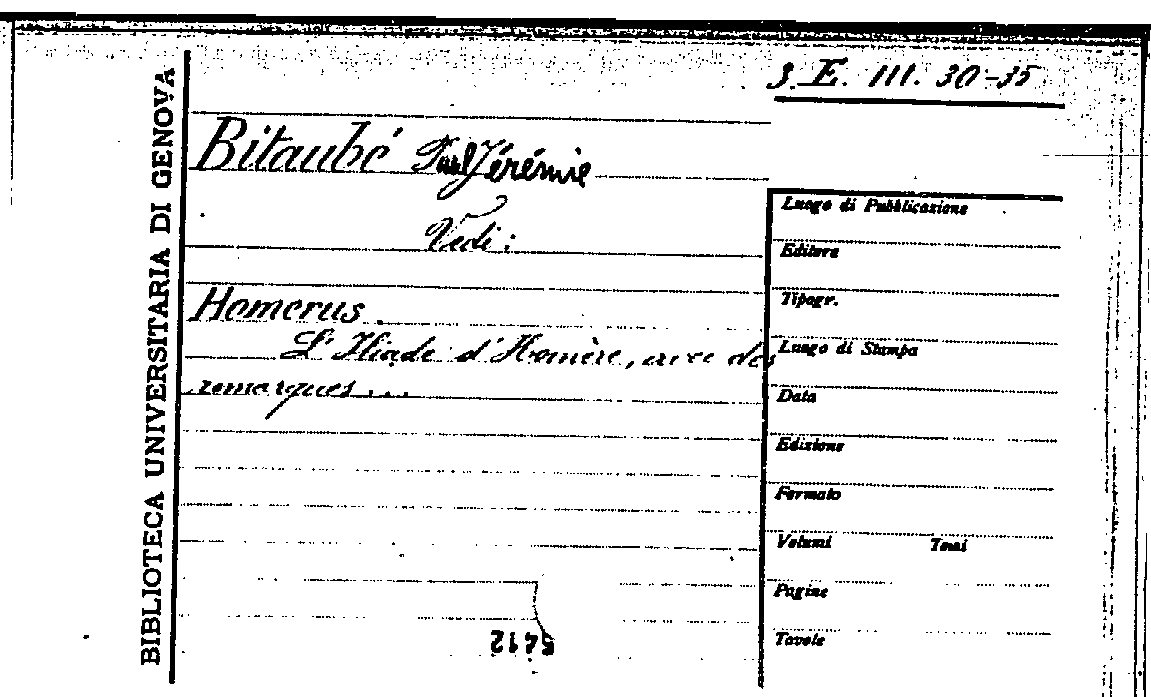 3. E. III. 30-35
BIBLIOTECA UNIVERSITARIA DI GENOVA
Bitaubé Paul Jérémie
Vedi:
Homerus.
L'Iliade d'Homère, avec des
remarques...
Luogo di Pubblicazione
Editore
Tipogr.
Luogo di Stampa
Data
Edizione
Formato
Volumi Tomi
Pagine
Tavole
5412